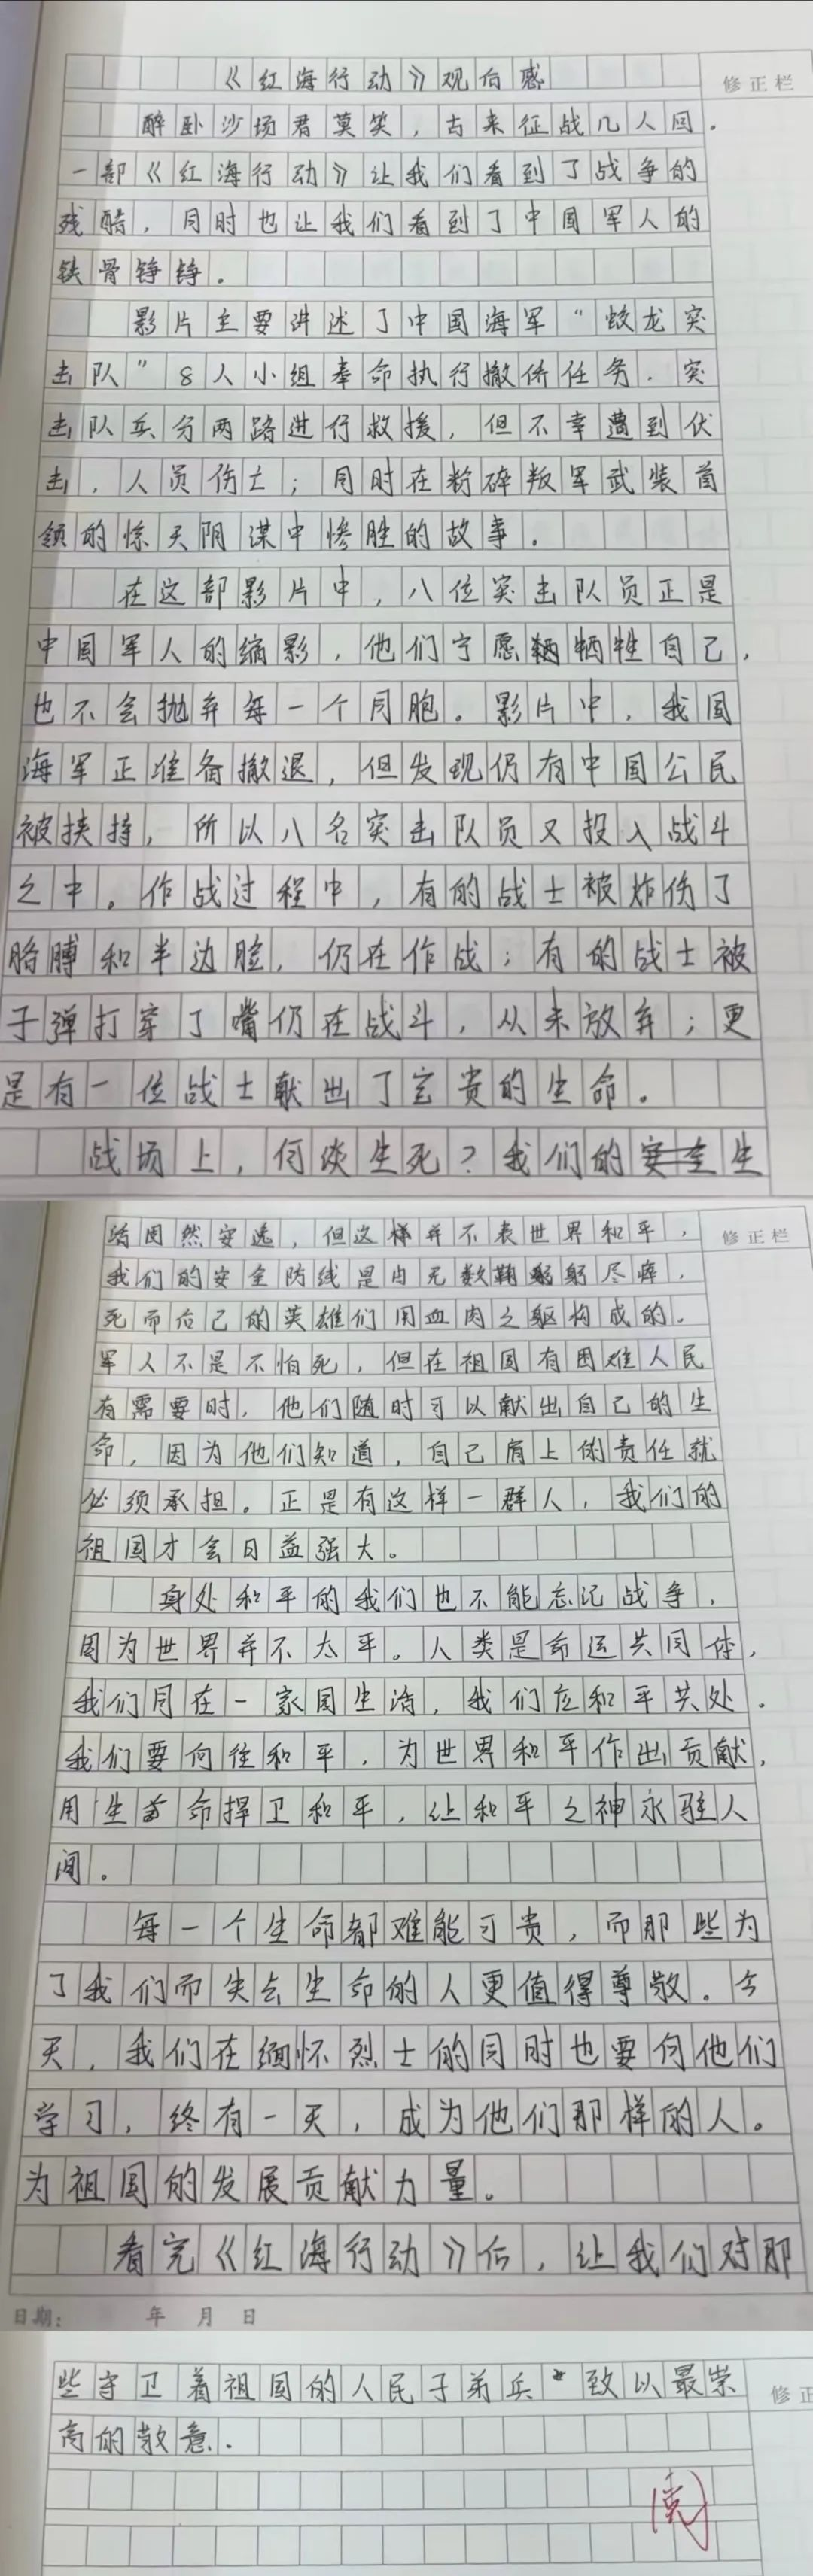 《红海行动》观后感
修正栏
醉卧沙场君莫笑，古来征战几人回．
一部《红海行动》让我们看到了战争的
残酷，同时也让我们看到了中国军人的
铁骨铮铮．
影片主要讲述了中国海军“蛟龙突
击队”8人小组奉命执行撤侨任务．突
击队兵分两路进行救援，但不幸遭到伏
击，人员伤亡；同时在粉碎叛军武装首
领的惊天阴谋中惨胜的故事．
在这部影片中，八位突击队员正是
中国军人的缩影，他们宁愿牺牲自己，
也不会抛弃每一个同胞。影片中，我国
海军正准备撤退，但发现仍有中国公民
被挟持，所以八名突击队员又投入战斗
之中．作战过程中，有的战士被炸伤了
胳膊和半边脸，仍在作战；有的战士被
子弹打穿了嘴仍在战斗，从未放弃；更
是有一位战士献出了宝贵的生命．
战场上，何谈生死？我们的安全生
活固然安逸，但这样并不表世界和平，
修正栏
我们的安全防线是由无数鞠躬尽瘁，
死而后已的英雄们用血肉之躯构成的．
军人不是不怕死，但在祖国有困难人民
有需要时，他们随时可以献出自己的生
命，因为他们知道，自己肩上的责任就
必须承担．正是有这样一群人，我们的
祖国才会日益强大。
身处和平的我们也不能忘记战争，
因为世界并不太平。人类是命运共同体，
我们同在一家园生活，我们应和平共处．
我们要向往和平，为世界和平作出贡献，
用生命捍卫和平，让和平之神永驻人
间．
每一个生命都难能可贵，而那些为
了我们而失去生命的人更值得尊敬．今
天，我们在缅怀烈士的同时也要向他们
学习，终有一天，成为他们那样的人。
为祖国的发展贡献力量。
看完《红海行动》后，让我们对那
日期：　年　月　日
些守卫着祖国的人民子弟兵致以最崇
修正
高的敬意．